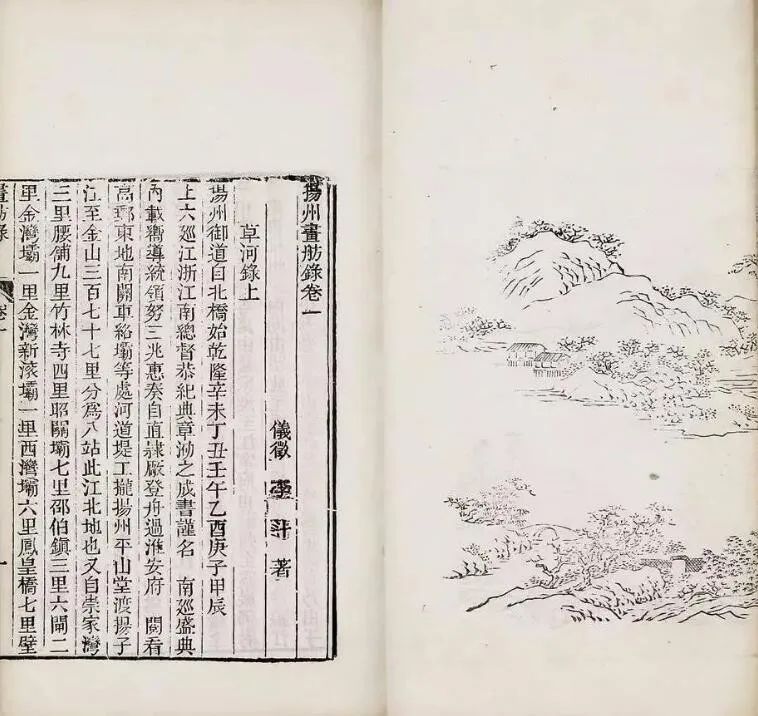 揚州畫舫錄卷一
儀徵 李斗 著
草河錄上
揚州御道自北橋始乾隆辛未丁丑壬午乙酉庚子甲辰
上六巡江浙江南總督恭紀典章泐之成書謹名 南巡盛典
內載嚮導統領努三兆惠奏自直隸廠登舟過淮安府 閱看
高郵東地南關車絡壩等處河道堤工攏揚州平山堂渡揚子
江至金山三百七十七里分爲八站此江北地也又自崇家灣
三里腰舖九里竹林寺四里昭關壩七里邵伯鎮三里六閘二
里金灣壩一里金灣新滾壩一里西灣壩六里鳳皇橋七里壁
畫舫錄 卷一 一